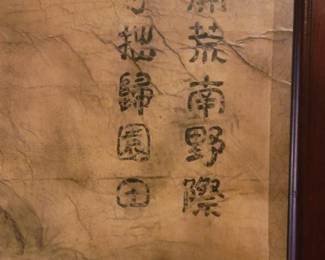 荒南野際
拙歸園田